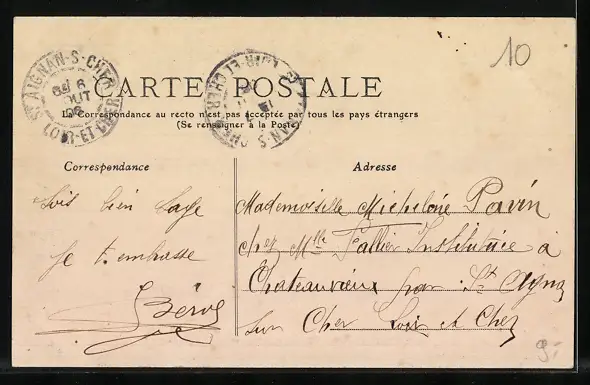 10
CARTE POSTALE
La Correspondance au recto n'est pas acceptée par tous les pays étrangers
(Se renseigner à la Poste)
ST AIGNAN-S-CHER
6
OUT
LOIR-ET-CHER
Correspondance
Adresse
Sois bien sage
je t'embrasse
Mademoiselle Pavin
chez Mlle Fallier Institutrice à
Chateauvieux par St Aignan
sur Cher Loir et Cher
9.-